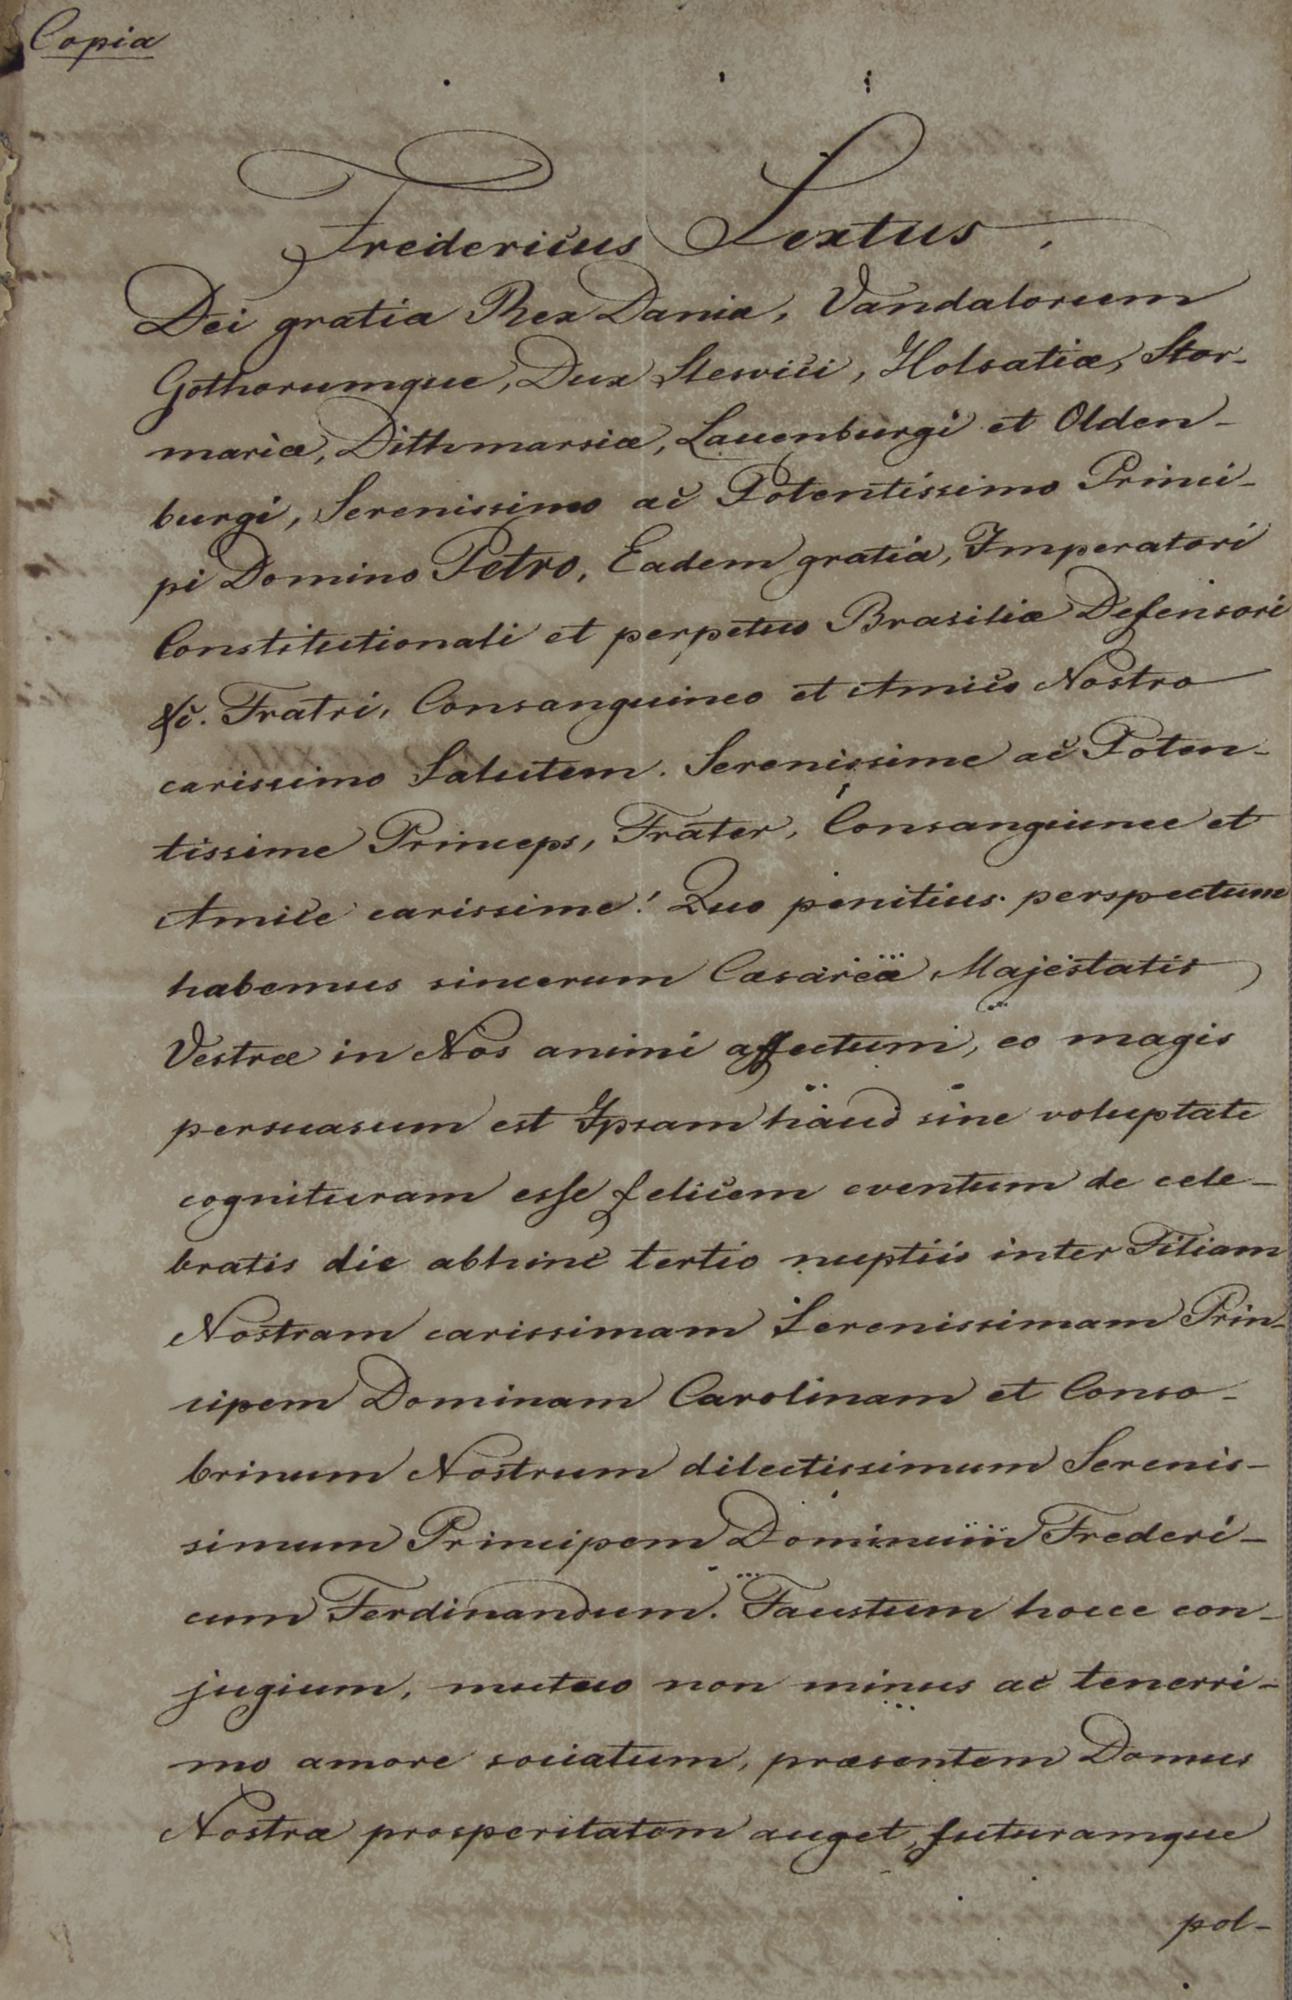 Copia
Fredericus Sextus,
Dei gratia Rex Daniæ, Vandalorum
Gothorumque, Dux Slesvici, Holsatiæ, Stor-
mariæ, Dithmarsiæ, Lauenburgi et Olden-
burgi, Serenissimo ac Potentissimo Princi-
pi Domino Petro, Eadem gratia, Imperatori
Constitutionali et perpetuo Brasiliæ Defensori
&c. Fratri, Consanguineo et Amico Nostro
carissimo Salutem. Serenissime ac Poten-
tissime Princeps, Frater, Consanguinee et
Amice carissime! Quo penitius perspectum
habemus sincerum Cæsareæ Majestatis
Vestræ in Nos animi affectum, eo magis
persuasum est Ipsam haud sine voluptate
cognituram esse felicem eventum de cele-
bratis die abhinc tertio nuptiis inter Filiam
Nostram carissimam Serenissimam Prin-
cipem Dominam Carolinam et Conso-
brinum Nostrum dilectissimum Serenis-
simum Principem Dominum Frederi-
cum Ferdinandum. Faustum hocce con-
jugium, mutuo non minus ac tenerri-
mo amore sociatum, præsentem Domus
Nostræ prosperitatem auget, futuramque
pol-